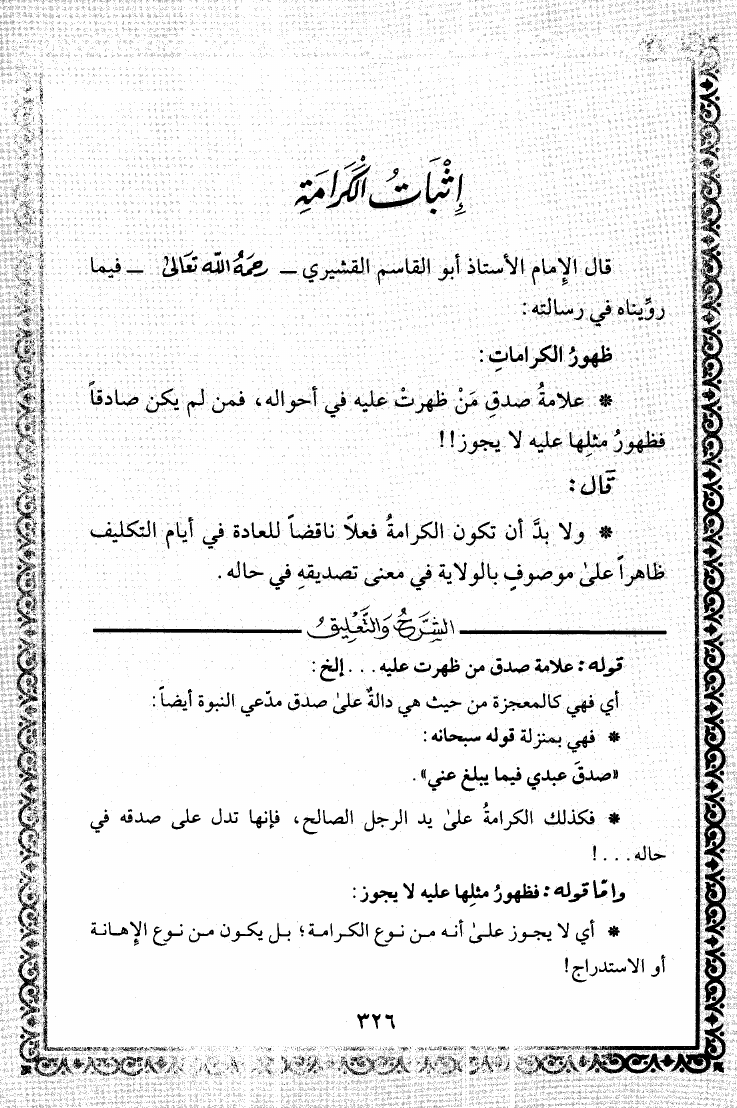 إِثْبَاتُ الْكَرَامَةِ
قال الإِمام الأستاذ أبو القاسم القشيري ــ رَحِمَهُ اللّه تَعَالىٰ ــ فيما
روِّيناه في رسالته :
ظهورُ الكراماتِ :
* علامةُ صدقِ مَنْ ظهرتْ عليه في أحواله، فمن لم يكن صادقاً
فظهورُ مثلِها عليه لا يجوز!!
قَال :
* ولا بدَّ أن تكون الكرامةُ فعلاً ناقضاً للعادة في أيام التكليف
ظاهراً علىٰ موصوفٍ بالولاية في معنى تصديقهِ في حاله .
الشَّرْحُ وَالتَّعْلِيقُ
قوله : علامة صدق من ظهرت عليه . . . إلخ :
أي فهي كالمعجزة من حيث هي دالةٌ علىٰ صدق مدّعي النبوة أيضاً :
* فهي بمنزلة قوله سبحانه :
«صدقَ عبدي فيما يبلغ عني» .
* فكذلك الكرامةُ علىٰ يد الرجل الصالح، فإنها تدل على صدقه في
حاله . . . !
وامّا قوله : فظهورُ مثلِها عليه لا يجوز :
* أي لا يجوز علىٰ أنه من نوع الكرامة؛ بل يكون من نوع الإهانة
أو الاستدراج!
٣٢٦